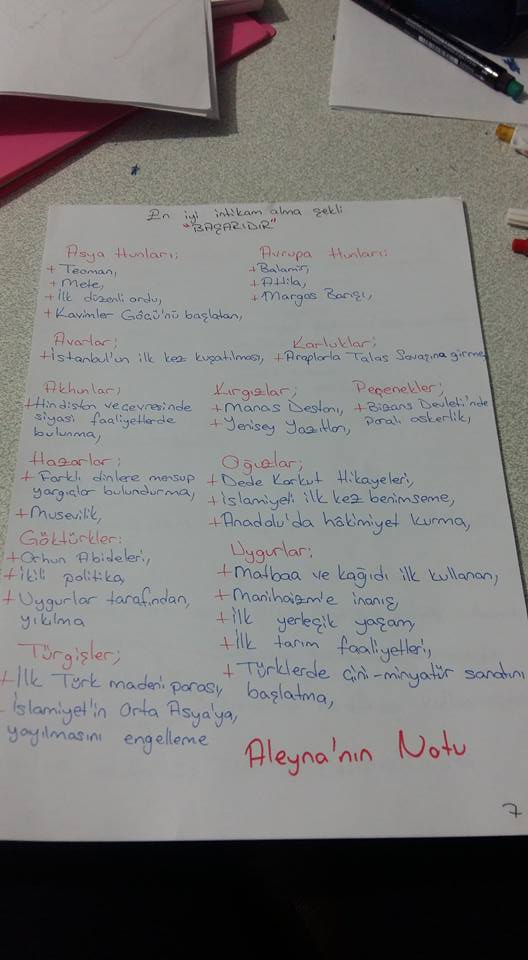 En iyi intikam alma şekli
"BAŞARIDIR"
Asya Hunları;
+ Teoman,
+ Mete,
+ İlk düzenli ordu,
+ Kavimler Göçü'nü başlatan,
Avrupa Hunları:
+ Balamir,
+ Attila,
+ Margos Barışı,
Avarlar;
+ İstanbul'un ilk kez kuşatılması,
Karluklar;
+ Araplarla Talas Savaşına girme,
Akhunlar;
+ Hindistan ve çevresinde
siyasi faaliyetlerde
bulunma,
Kırgızlar;
+ Manas Destanı,
+ Yenisey Yazıtları,
Peçenekler;
+ Bizans Devleti'nde
Paralı askerlik,
Hazarlar;
+ Farklı dinlere mensup
yargıçlar bulundurma,
+ Musevilik,
Oğuzlar;
+ Dede Korkut Hikayeleri,
+ İslamiyeti ilk kez benimseme,
+ Anadolu'da hâkimiyet kurma,
Göktürkler:
+ Orhun Abideleri,
+ İkili politika,
+ Uygurlar tarafından,
yıkılma
Uygurlar;
+ Matbaa ve kağıdı ilk kullanan,
+ Manihaizm'e inanış,
+ İlk yerleşik yaşam,
+ İlk tarım faaliyetleri,
+ Türklerde çini-minyatür sanatını
başlatma,
Türgişler;
+ İlk Türk madeni parası,
- İslamiyet'in Orta Asya'ya,
yayılmasını engelleme
Aleyna'nın Notu
7